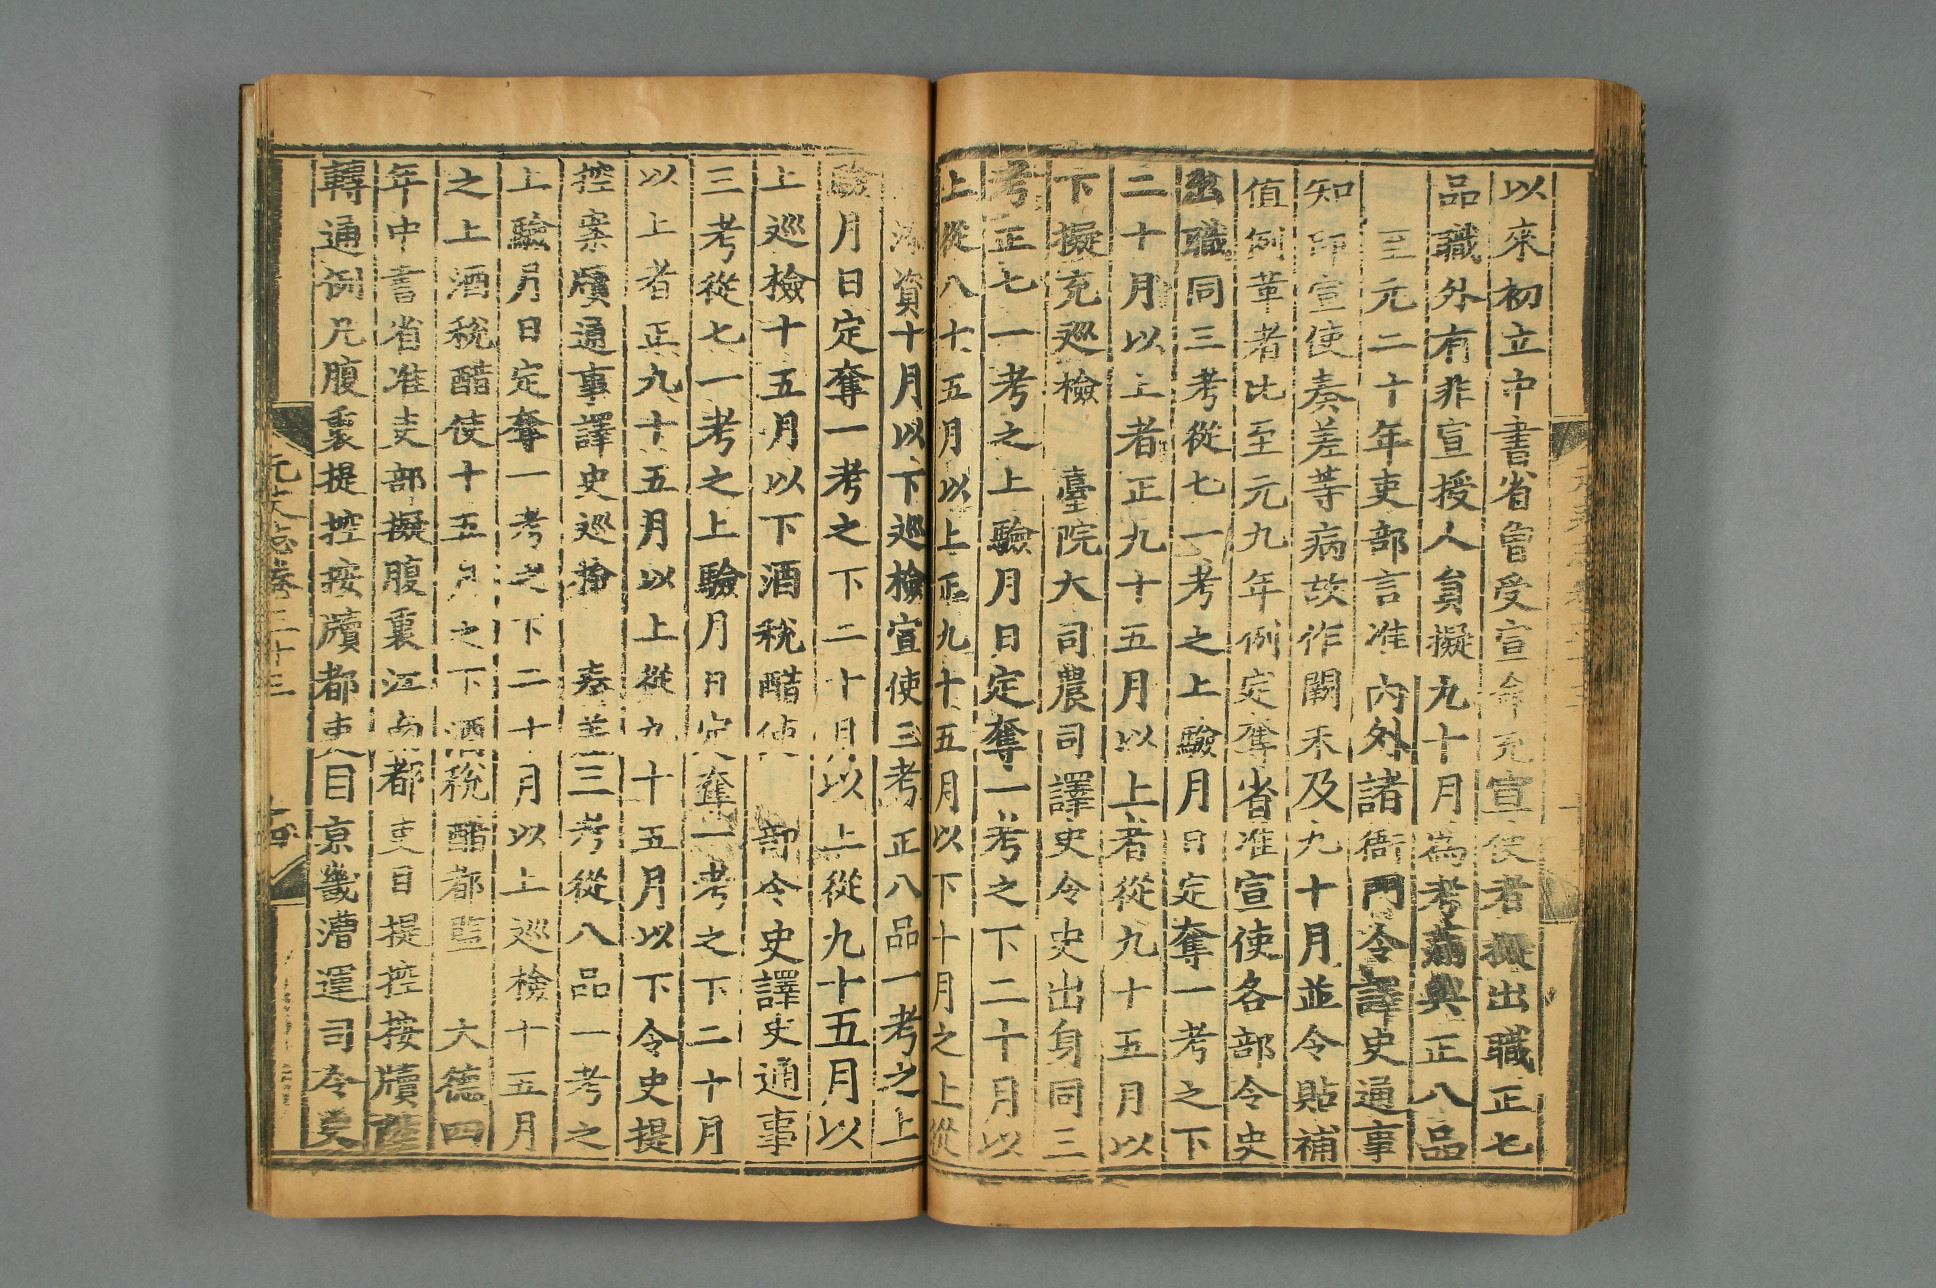 以來初立中書省曾受宣命充宣使者擬出職正七
品職外有非宣授人員擬九十月為考滿與正八品
至元二十年吏部言准內外諸衙門令譯史通事
知印宣使奏差等病故作闕未及九十月並令貼補
值例革者比至元九年例定奪省准宣使各部令史
出職同三考從七一考之上驗月日定奪一考之下
二十月以上者正九十五月以上者從九十五月以
下擬充巡檢 臺院大司農司譯史令史出身同三
考正七一考之上驗月日定奪一考之下二十月以
上從八十五月以上正九十五月以下十月之上從
資十月以下巡檢宣使三考正八品一考之上
驗月日定奪一考之下二十月以上從九十五月以
上巡檢十五月以下酒稅醋使 部令史譯史通事
三考從七一考之上驗月日定奪一考之下二十月
以上者正九十五月以上從九十五月以下令史提
控案牘通事譯史巡檢 奏差三考從八品一考之
上驗月日定奪一考之下二十月以上巡檢十五月
之上酒稅醋使十五月之下酒稅醋都監 大德四
年中書省准吏部擬腹裏江南都吏目提控按牘陞
轉通例凡腹裏提控按牘都吏目京畿漕運司令史
元史志卷三十三
十四